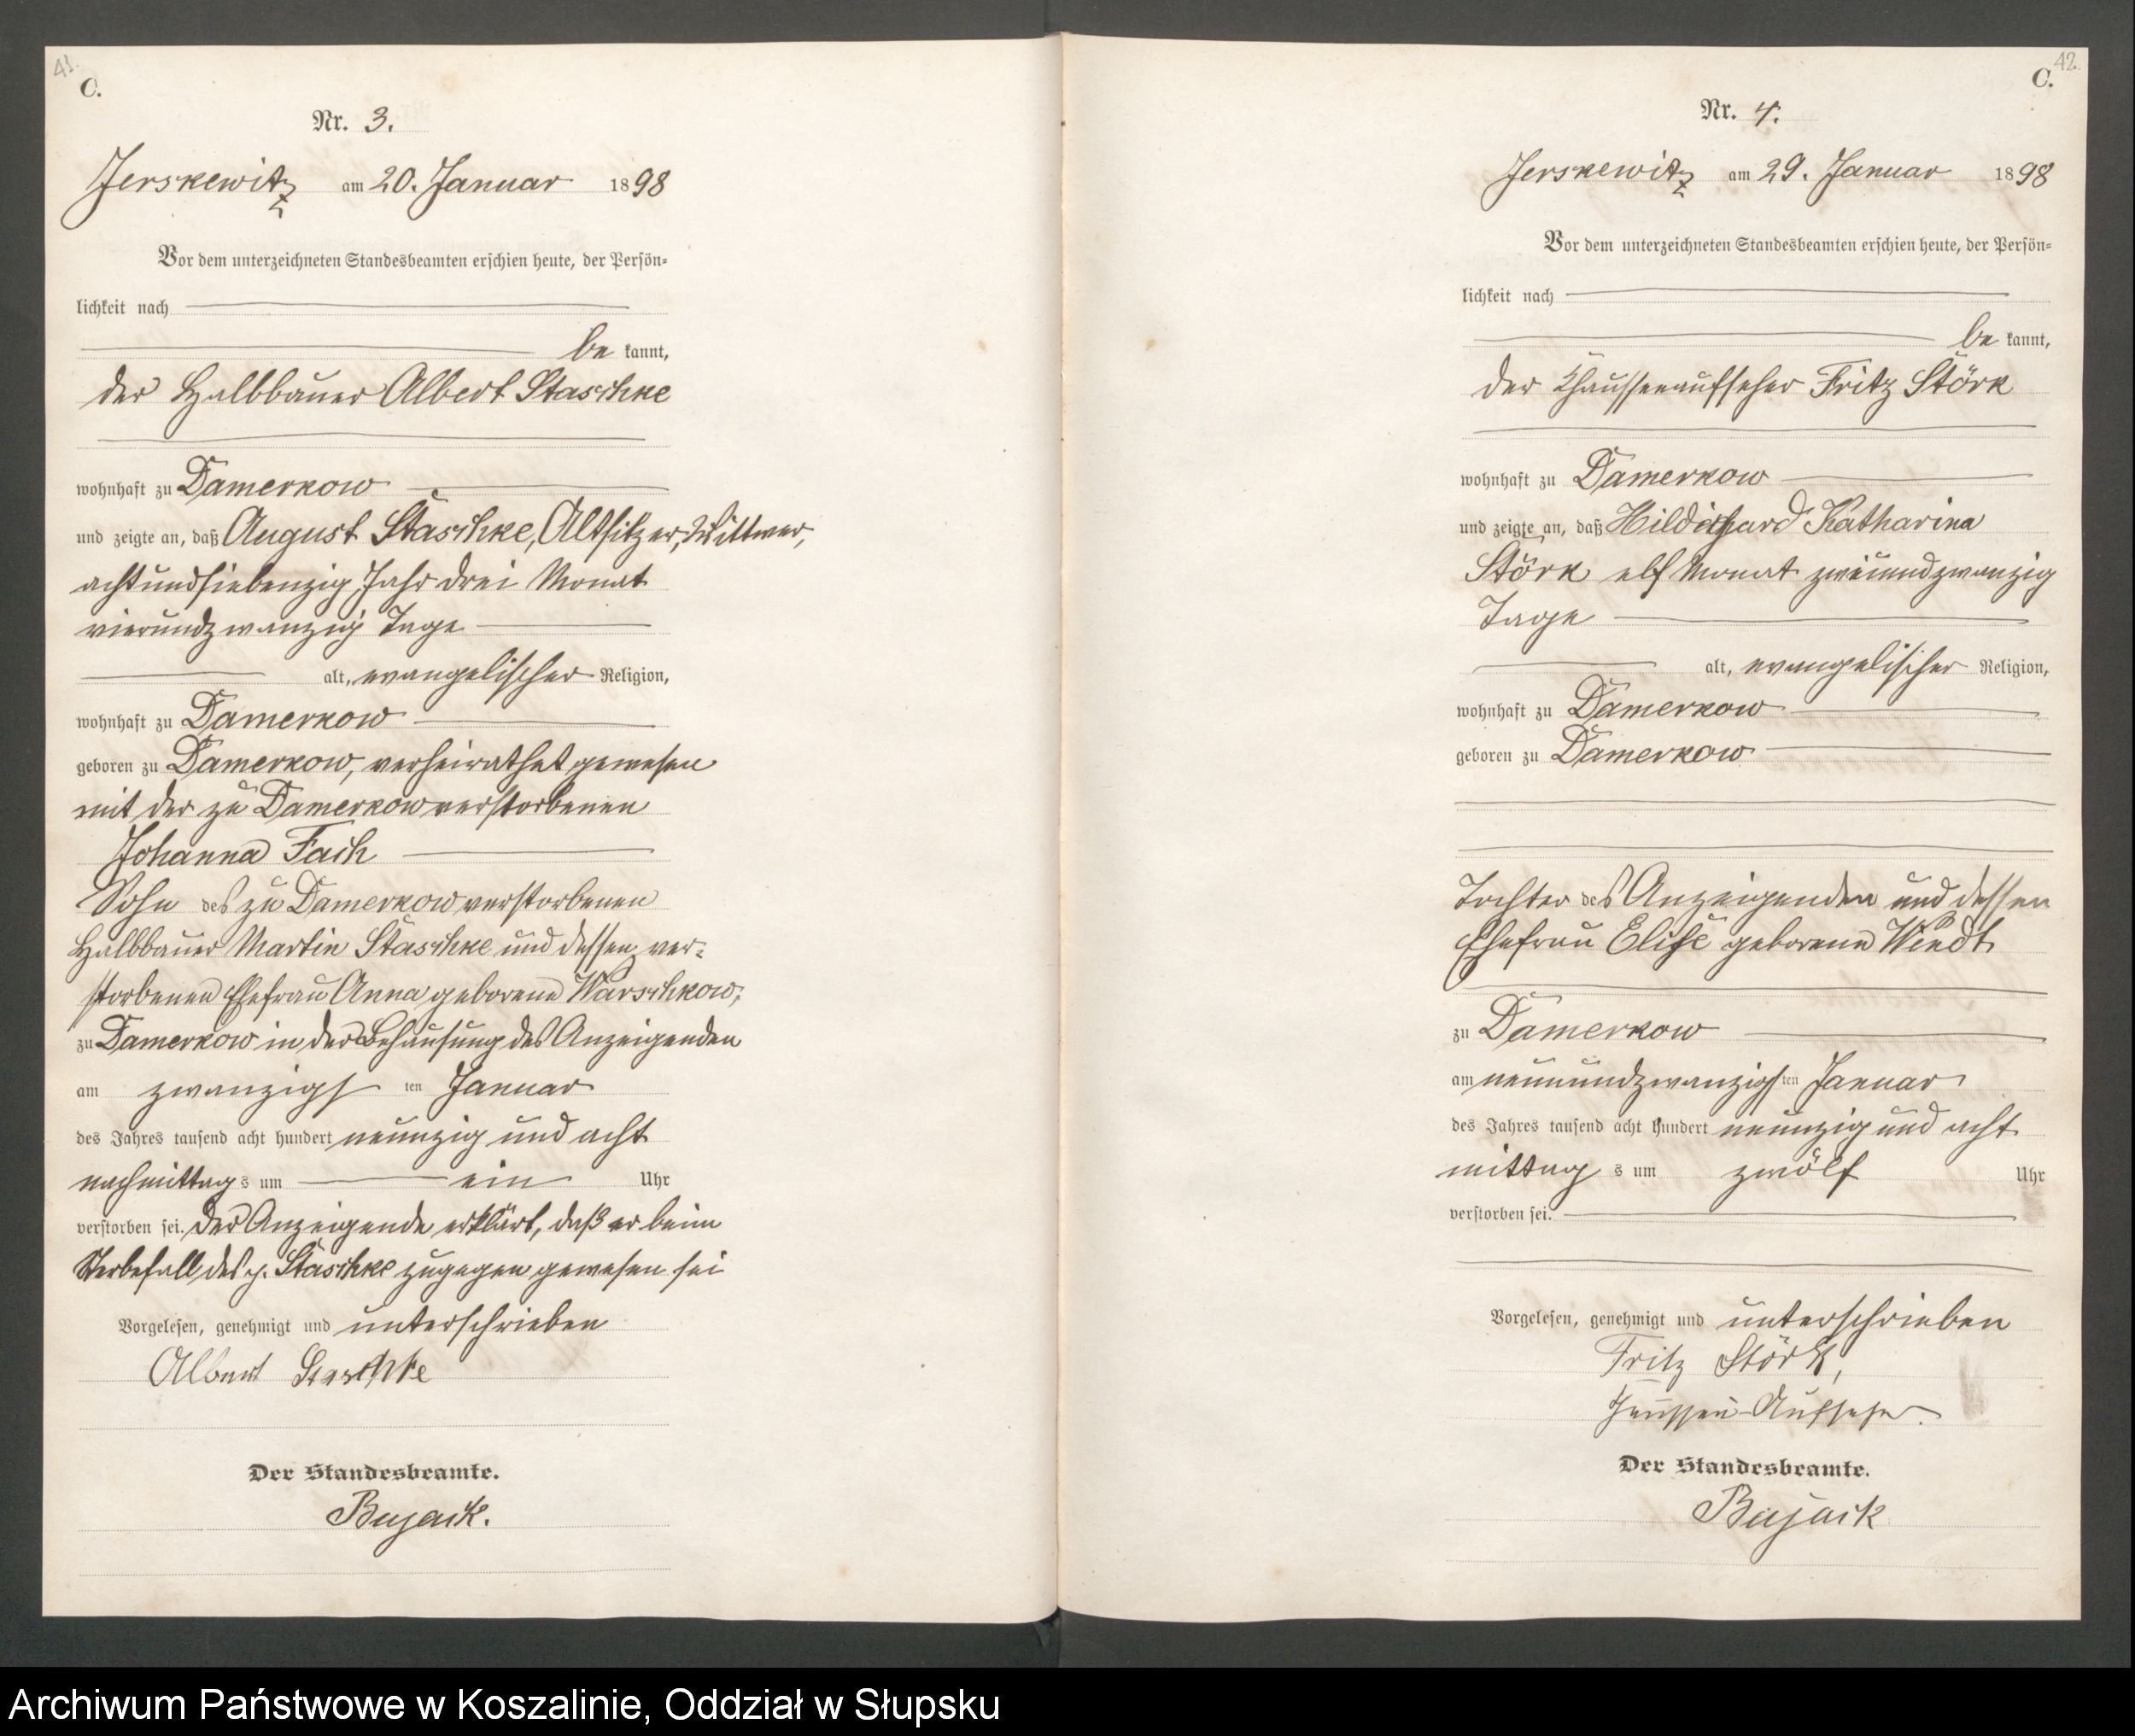 41.
C.
Nr. 3.
Jerskewitz am 20. Januar 1898
Vor dem unterzeichneten Standesbeamten erschien heute, der Persön-
lichkeit nach
be kannt,
der Halbbauer Albert Staschke
wohnhaft zu Damerkow
und zeigte an, daß August Staschke, Altsitzer, Wittwer,
achtundsiebenzig Jahr drei Monat
vierundzwanzig Tage
alt, evangelischer Religion,
wohnhaft zu Damerkow
geboren zu Damerkow, verheirathet gewesen
mit der zu Damerkow verstorbenen
Johanna Fach
Sohn des zu Damerkow verstorbenen
Halbbauer Martin Staschke und dessen ver-
storbenen Ehefrau Anna geborene Warschkow,
zu Damerkow in der Behausung des Anzeigenden
am zwanzigsten Januar
des Jahres tausend acht hundert neunzig und acht
nachmittags um ein Uhr
verstorben sei. Der Anzeigende erklärt, daß er beim
Sterbefall des p. Staschke zugegen gewesen sei
Vorgelesen, genehmigt und unterschrieben
Albert Staschke
Der Standesbeamte.
Bujack.
42.
C.
Nr. 4.
Jerskewitz am 29. Januar 1898
Vor dem unterzeichneten Standesbeamten erschien heute, der Persön-
lichkeit nach
be kannt,
der Chausseeaufseher Fritz Störk
wohnhaft zu Damerkow
und zeigte an, daß Katharina
Störk elf Monat zweiundzwanzig
Tage
alt, evangelischer Religion,
wohnhaft zu Damerkow
geboren zu Damerkow
Tochter des Anzeigenden und dessen
Ehefrau Elise geborene Windt
zu Damerkow
am neunundzwanzigsten Januar
des Jahres tausend acht hundert neunzig und acht
mittags um zwölf Uhr
verstorben sei.
Vorgelesen, genehmigt und unterschrieben
Fritz Störk,
Aufseher.
Der Standesbeamte.
Bujack
Archiwum Państwowe w Koszalinie, Oddział w Słupsku